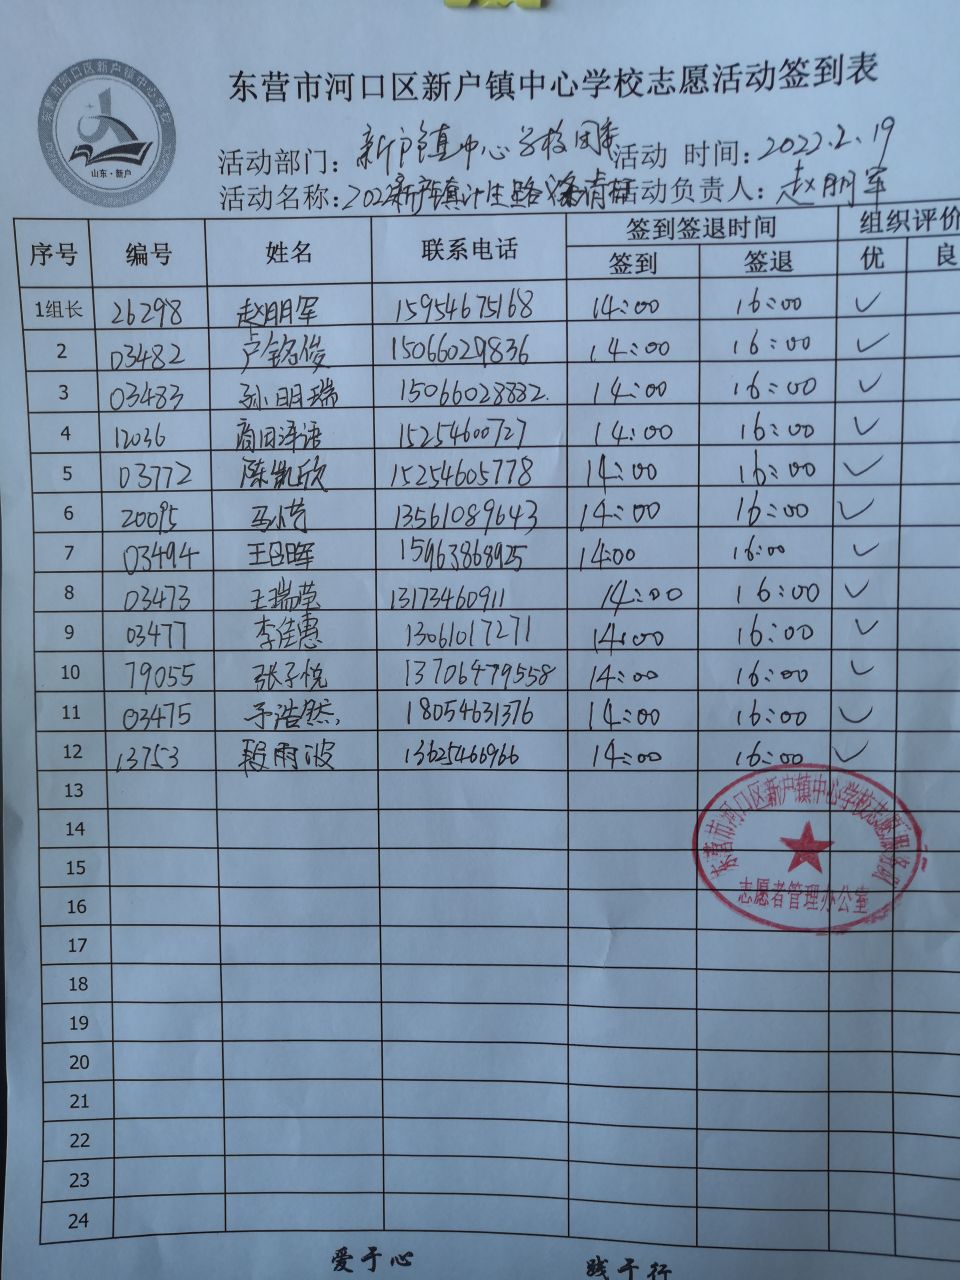 东营市河口区新户镇中心学校志愿活动签到表
东营市河口区新户镇中心学校
山东·新户
活动部门：新户镇中心学校团委 活动 时间：2022.2.19
活动名称：2022新户镇计生路 清 活动负责人：赵朋军
序号 编号 姓名 联系电话 签到签退时间 组织评价
签到 签退 优 良
1组长 26298 赵朋军 15954675168 14:00 16:00 ✓
2 03482 卢铭俊 15066029836 14:00 16:00 ✓
3 03483 孙明瑞 15066028882. 14:00 16:00 ✓
4 12036 商田泽语 15254600727 14:00 16:00 ✓
5 03772 陈凯欣 15254605778 14:00 16:00 ✓
6 20095 马 13561089643 14:00 16:00 ✓
7 03494 王日晖 15963868925 14:00 16:00 ✓
8 03473 王瑞莹 13173460911 14:00 16:00 ✓
9 03477 李佳惠 13061017271 14:00 16:00 ✓
10 79055 张子悦 13706479558 14:00 16:00 ✓
11 03475 浩然 18054631376 14:00 16:00 ✓
12 13753 段雨波 13625466966 14:00 16:00 ✓
13
14
15
16
17
18
19
20
21
22
23
24
东营市河口区新户镇中心学校志愿服务
志愿者管理办公室
爱于心 践于行